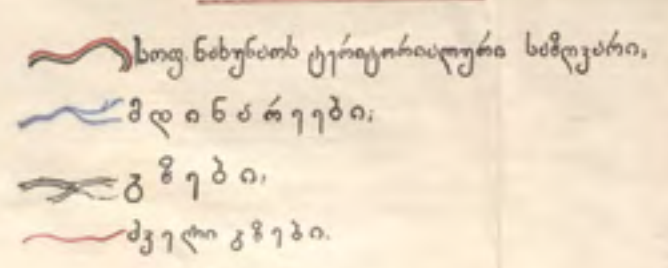 სოფ. ნახუნაოს ტერიტორიალური საზღვარი,
მდინარეები;
გზები,
ძველი გზები.